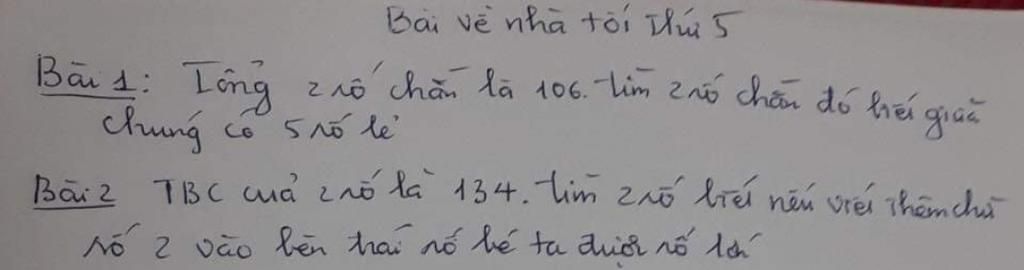 Bài về nhà tối thứ 5
Bài 1: Tổng 2 số chẵn là 106. tìm 2 số chẵn đó biết giữa
chúng có 5 số lẻ
Bài 2 TBC của 2 số là 134. tìm 2 số biết nếu viết thêm chữ
số 2 vào bên trái số bé ta được số lớn